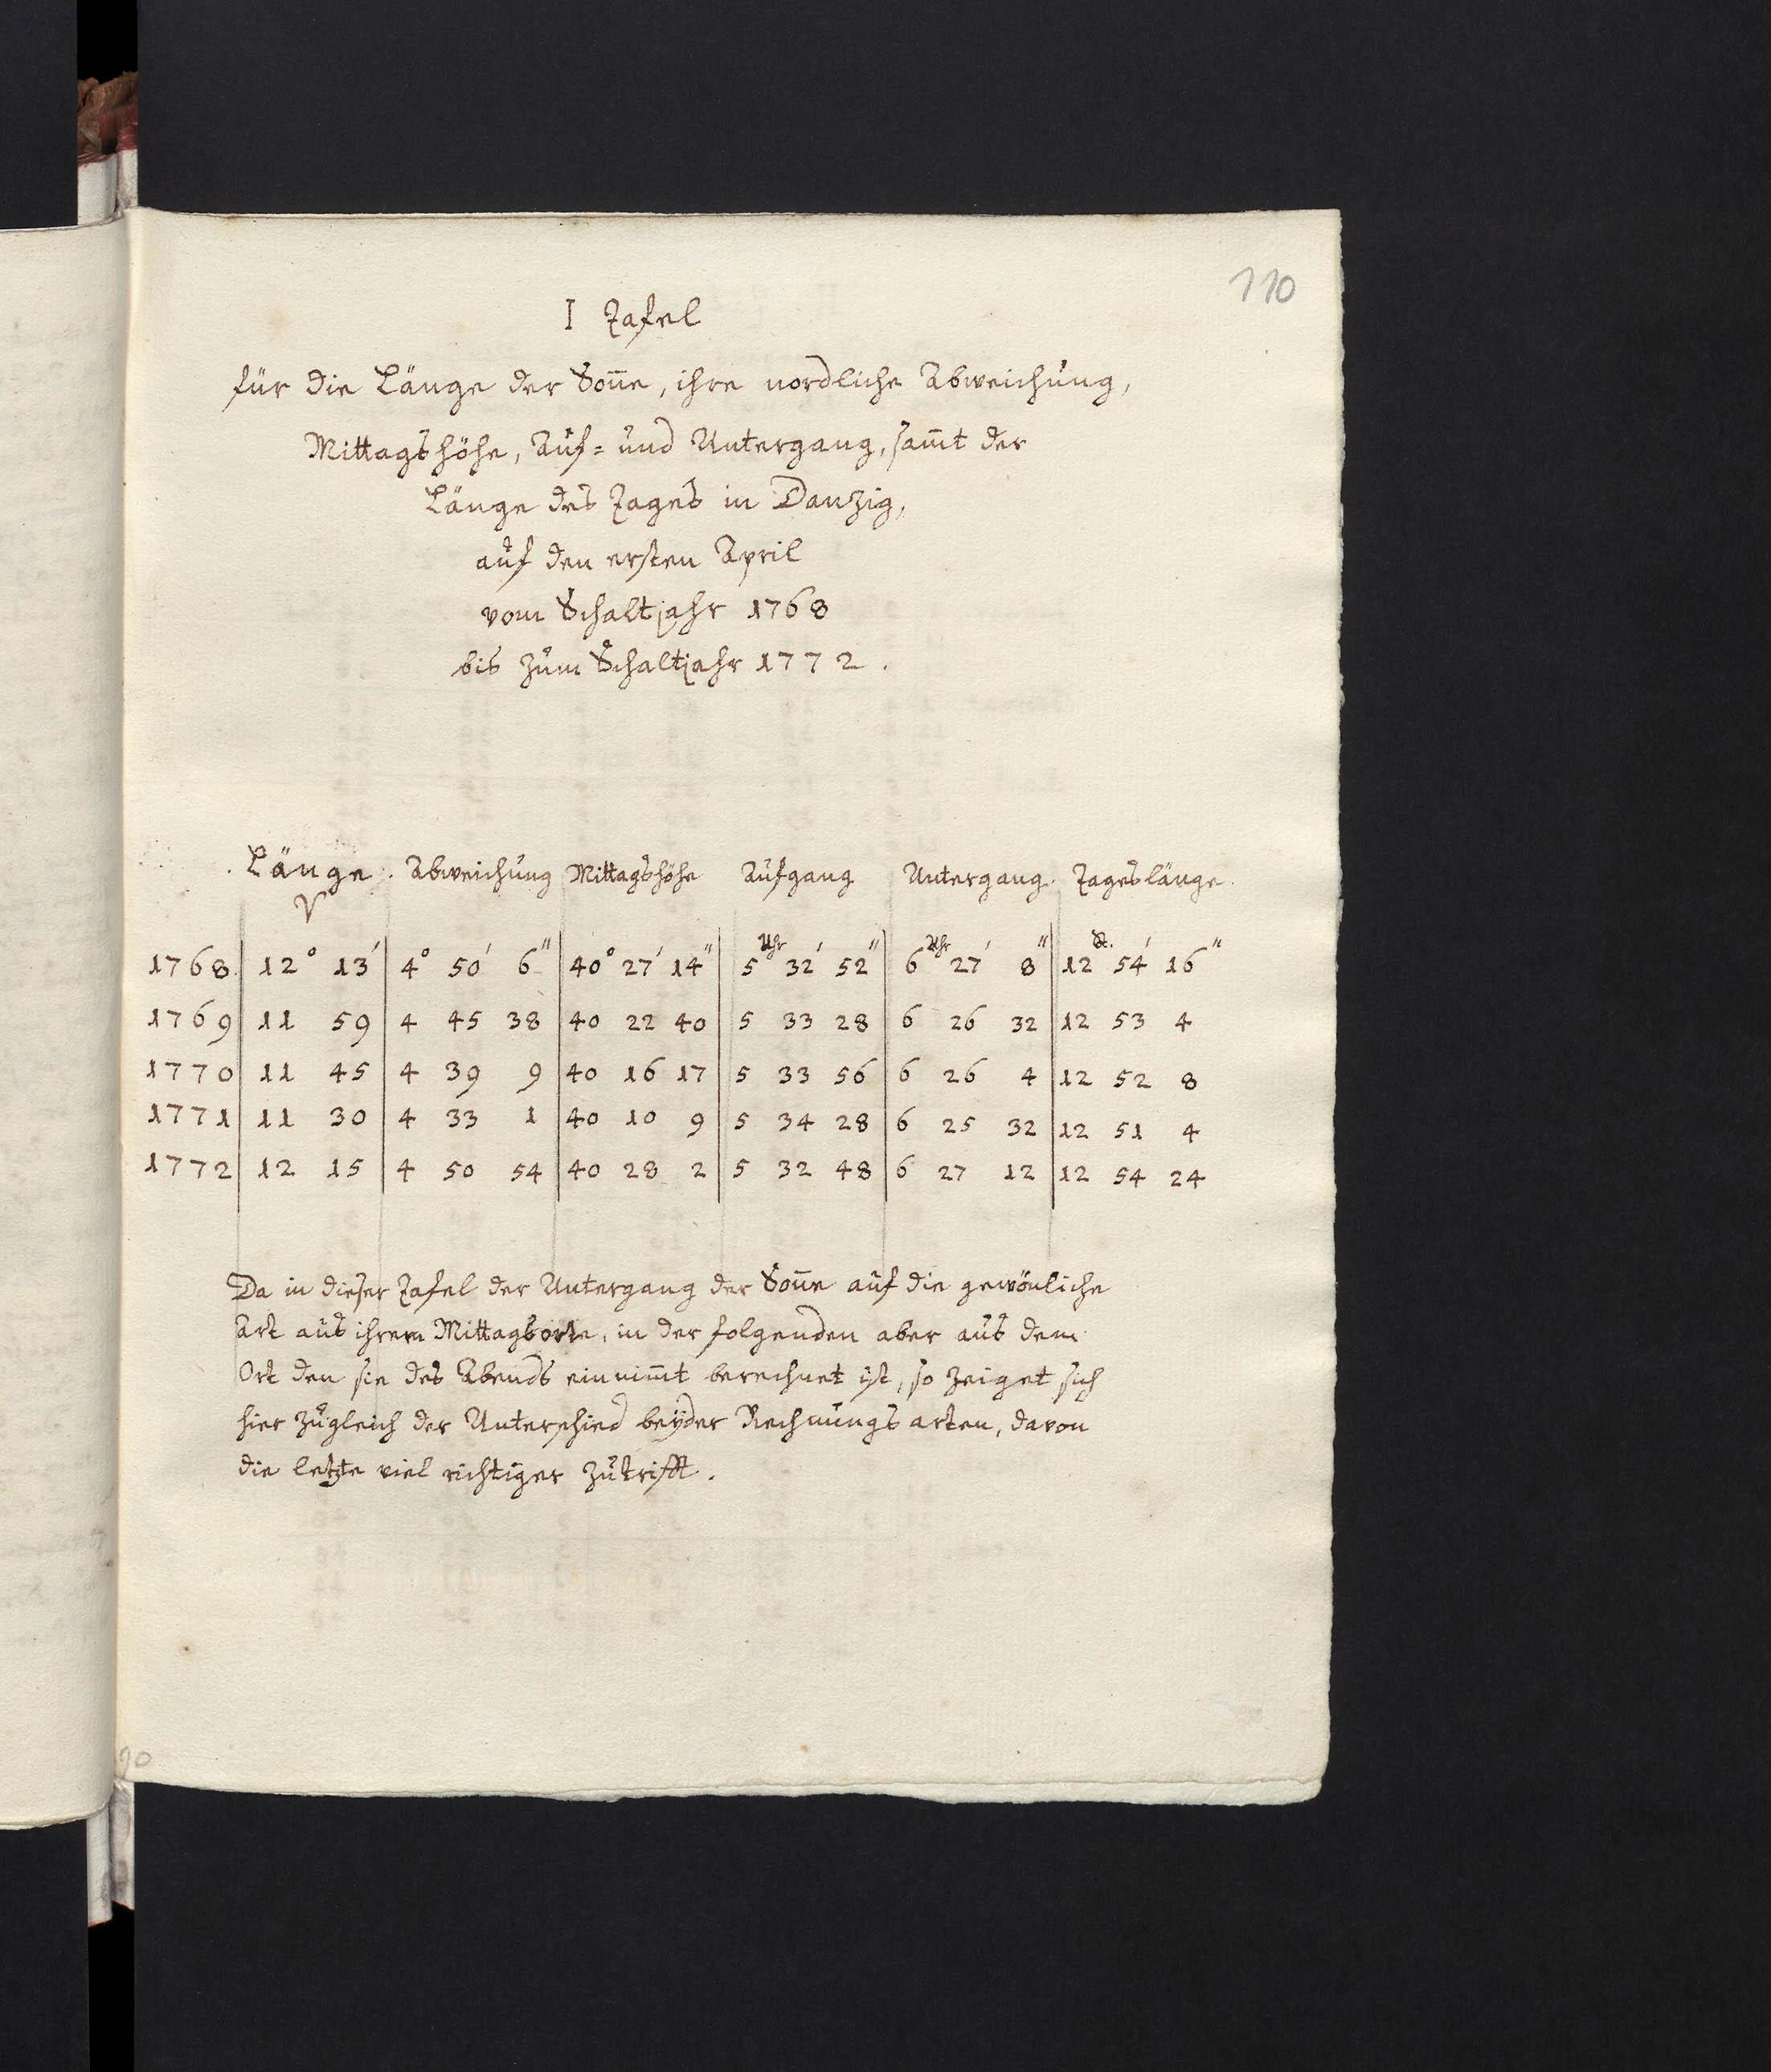 110
I Tafel
für die Länge der Soñe, ihre nordliche Abweichung,
Mittagshöhe, Auf= und Untergang, sam̃t der
Länge des Tages in Danzig,
auf den ersten April
vom Schaltjahr 1768
bis zum Schaltjahr 1772.
Länge. Abweichung Mittagshöhe Aufgang Untergang. Tageslänge.
♈
1768. 12° 13′ 4° 50′ 6″ 40° 27′ 14″ 5 Uhr 32′ 52″ 6 Uhr 27′ 8″ 12 St. 54′ 16″
1769 11 59 4 45 38 40 22 40 5 33 28 6 26 32 12 53 4
1770 11 45 4 39 9 40 16 17 5 33 56 6 26 4 12 52 8
1771 11 30 4 33 1 40 10 9 5 34 28 6 25 32 12 51 4
1772 12 15 4 50 54 40 28 2 5 32 48 6 27 12 12 54 24
Da in dieser Tafel der Untergang der Soñe auf die gewönliche
Art aus ihrem Mittagsorte, in der folgenden aber aus dem
Ort den sie des Abends einnim̃t berechnet ist, so zeiget sich
hier zugleich der Unterschied beÿder Rechnungs arten, davon
die letzte viel richtiger zutrifft.